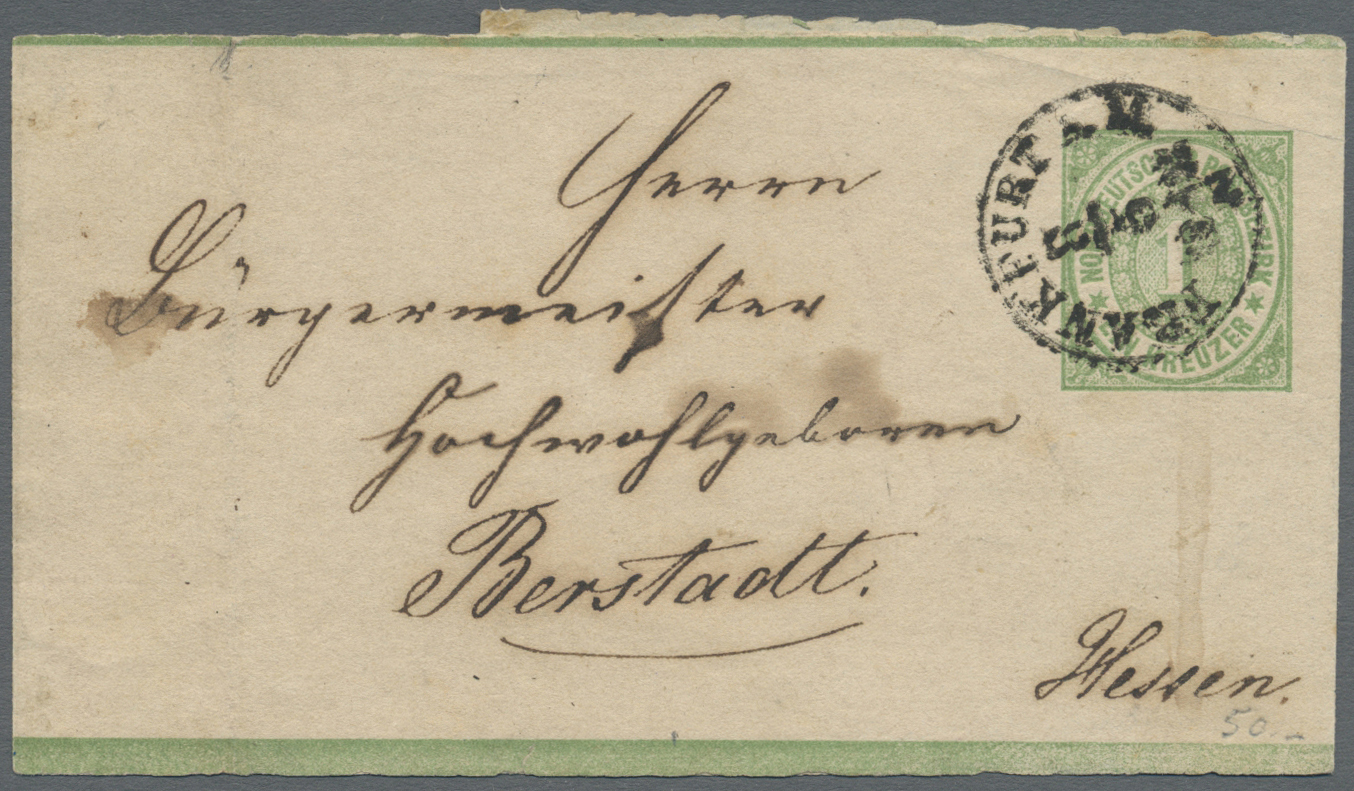 Herrn
Bürgermeister
Hochwohlgeboren
Berstadt.
Hessen.
50.–
FRANKFURT A. M.
NORDDEUTSCHER POSTBEZIRK
EIN KREUZER
1